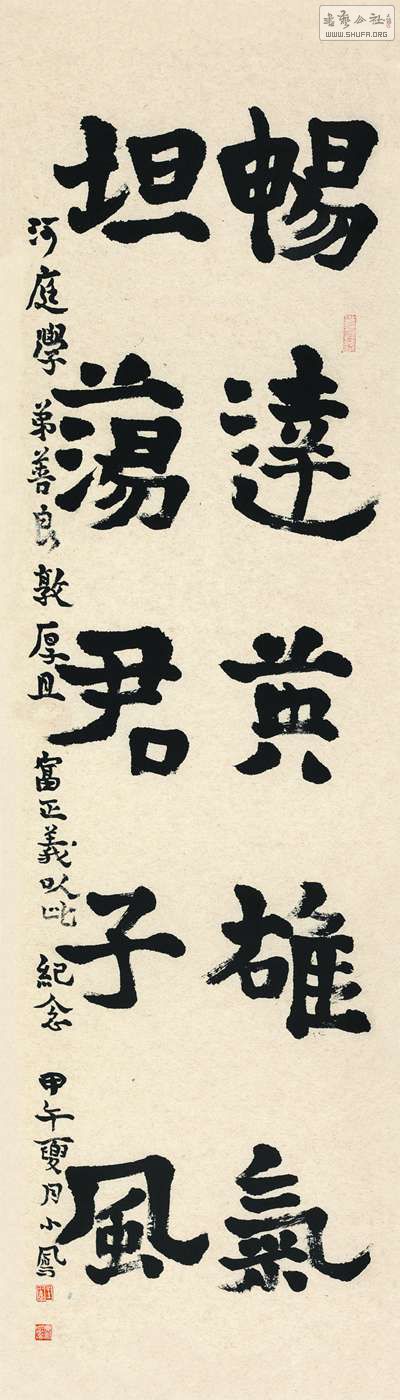 暢達英雄氣
坦蕩君子風
河庭學弟善良敦厚且富正義以此紀念甲午夏月小鳳
書藝公社
WWW.SHUFA.ORG